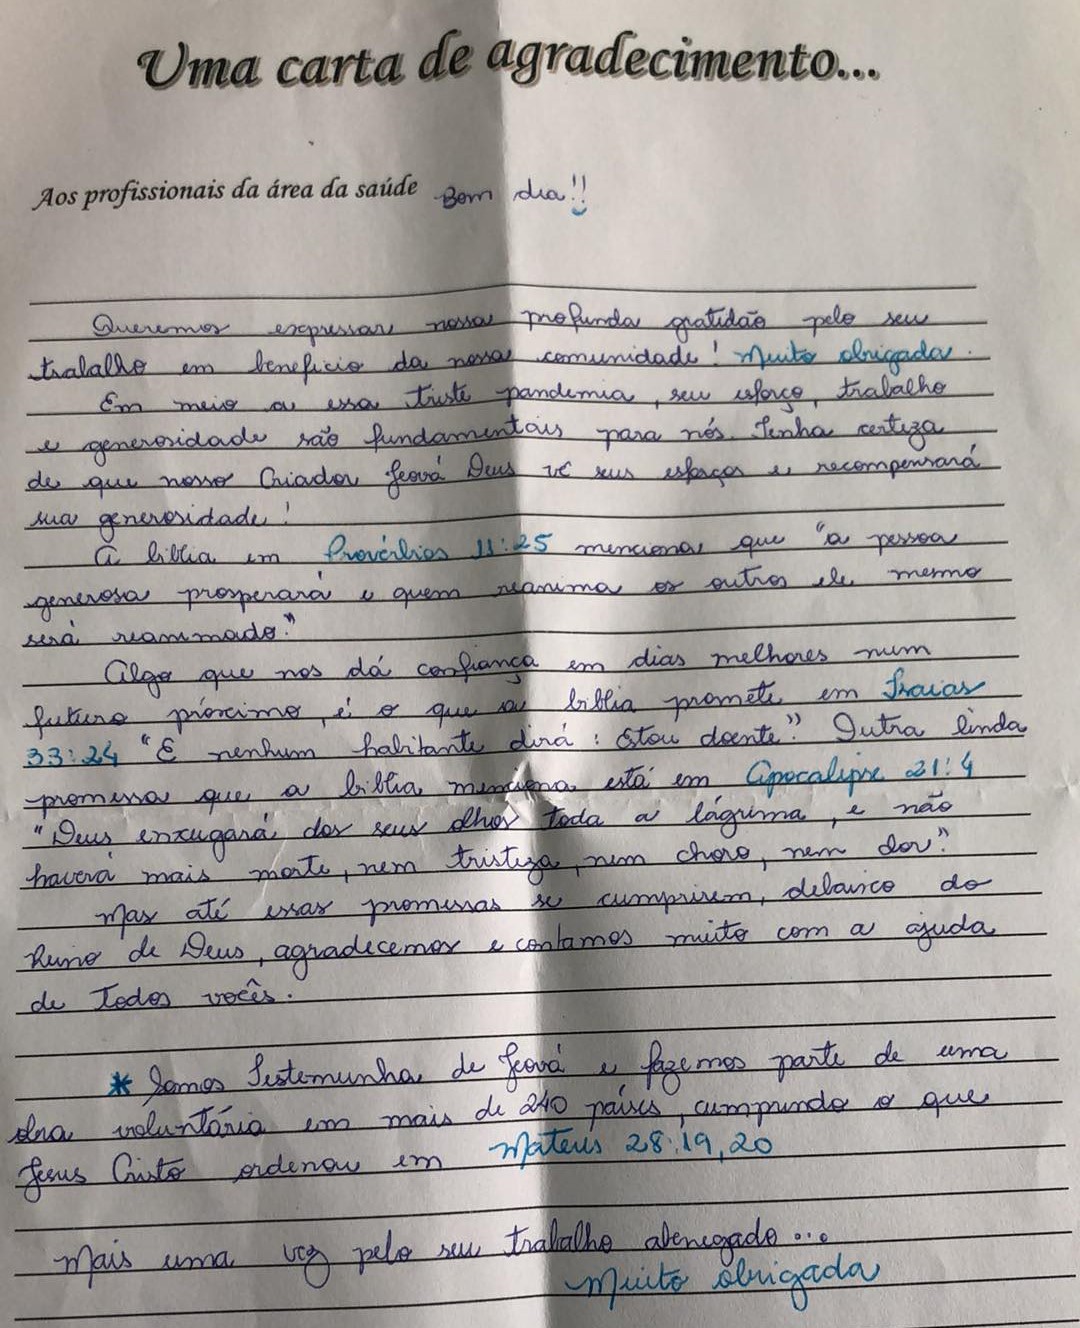 Uma carta de agradecimento...
Aos profissionais da área da saúde Bom dia!!
Queremos expressar nossa profunda gratidão pelo seu
trabalho em beneficio da nossa comunidade! Muito obrigada.
Em meio a essa triste pandemia, seu esforço, trabalho
e generosidade são fundamentais para nós. Tenha certeza
de que nosso Criador Jeová Deus vê seus esforços e recompensará
sua generosidade!
A biblia em Provérbios 11:25 menciona que "a pessoa
generosa prosperará e quem reanima os outros ele mesmo
será reanimado."
Algo que nos dá confiança em dias melhores num
futuro próximo, é o que a biblia promete em Isaias
33:24 "E nenhum habitante dirá: Estou doente." Outra linda
promessa que a biblia menciona está em Apocalipse 21:4
"Deus enxugará dos seus olhos toda a lágrima, e não
haverá mais morte, nem tristeza, nem choro, nem dor."
Mas até essas promessas se cumprirem, debaixo do
Reino de Deus, agradecemos e contamos muito com a ajuda
de todos vocês.
* Somos Testemunha de Jeová e fazemos parte de uma
obra voluntária em mais de 240 países, cumprindo o que
Jesus Cristo ordenou em Mateus 28:19,20
Mais uma vez pelo seu trabalho abenegado...
Muito obrigada